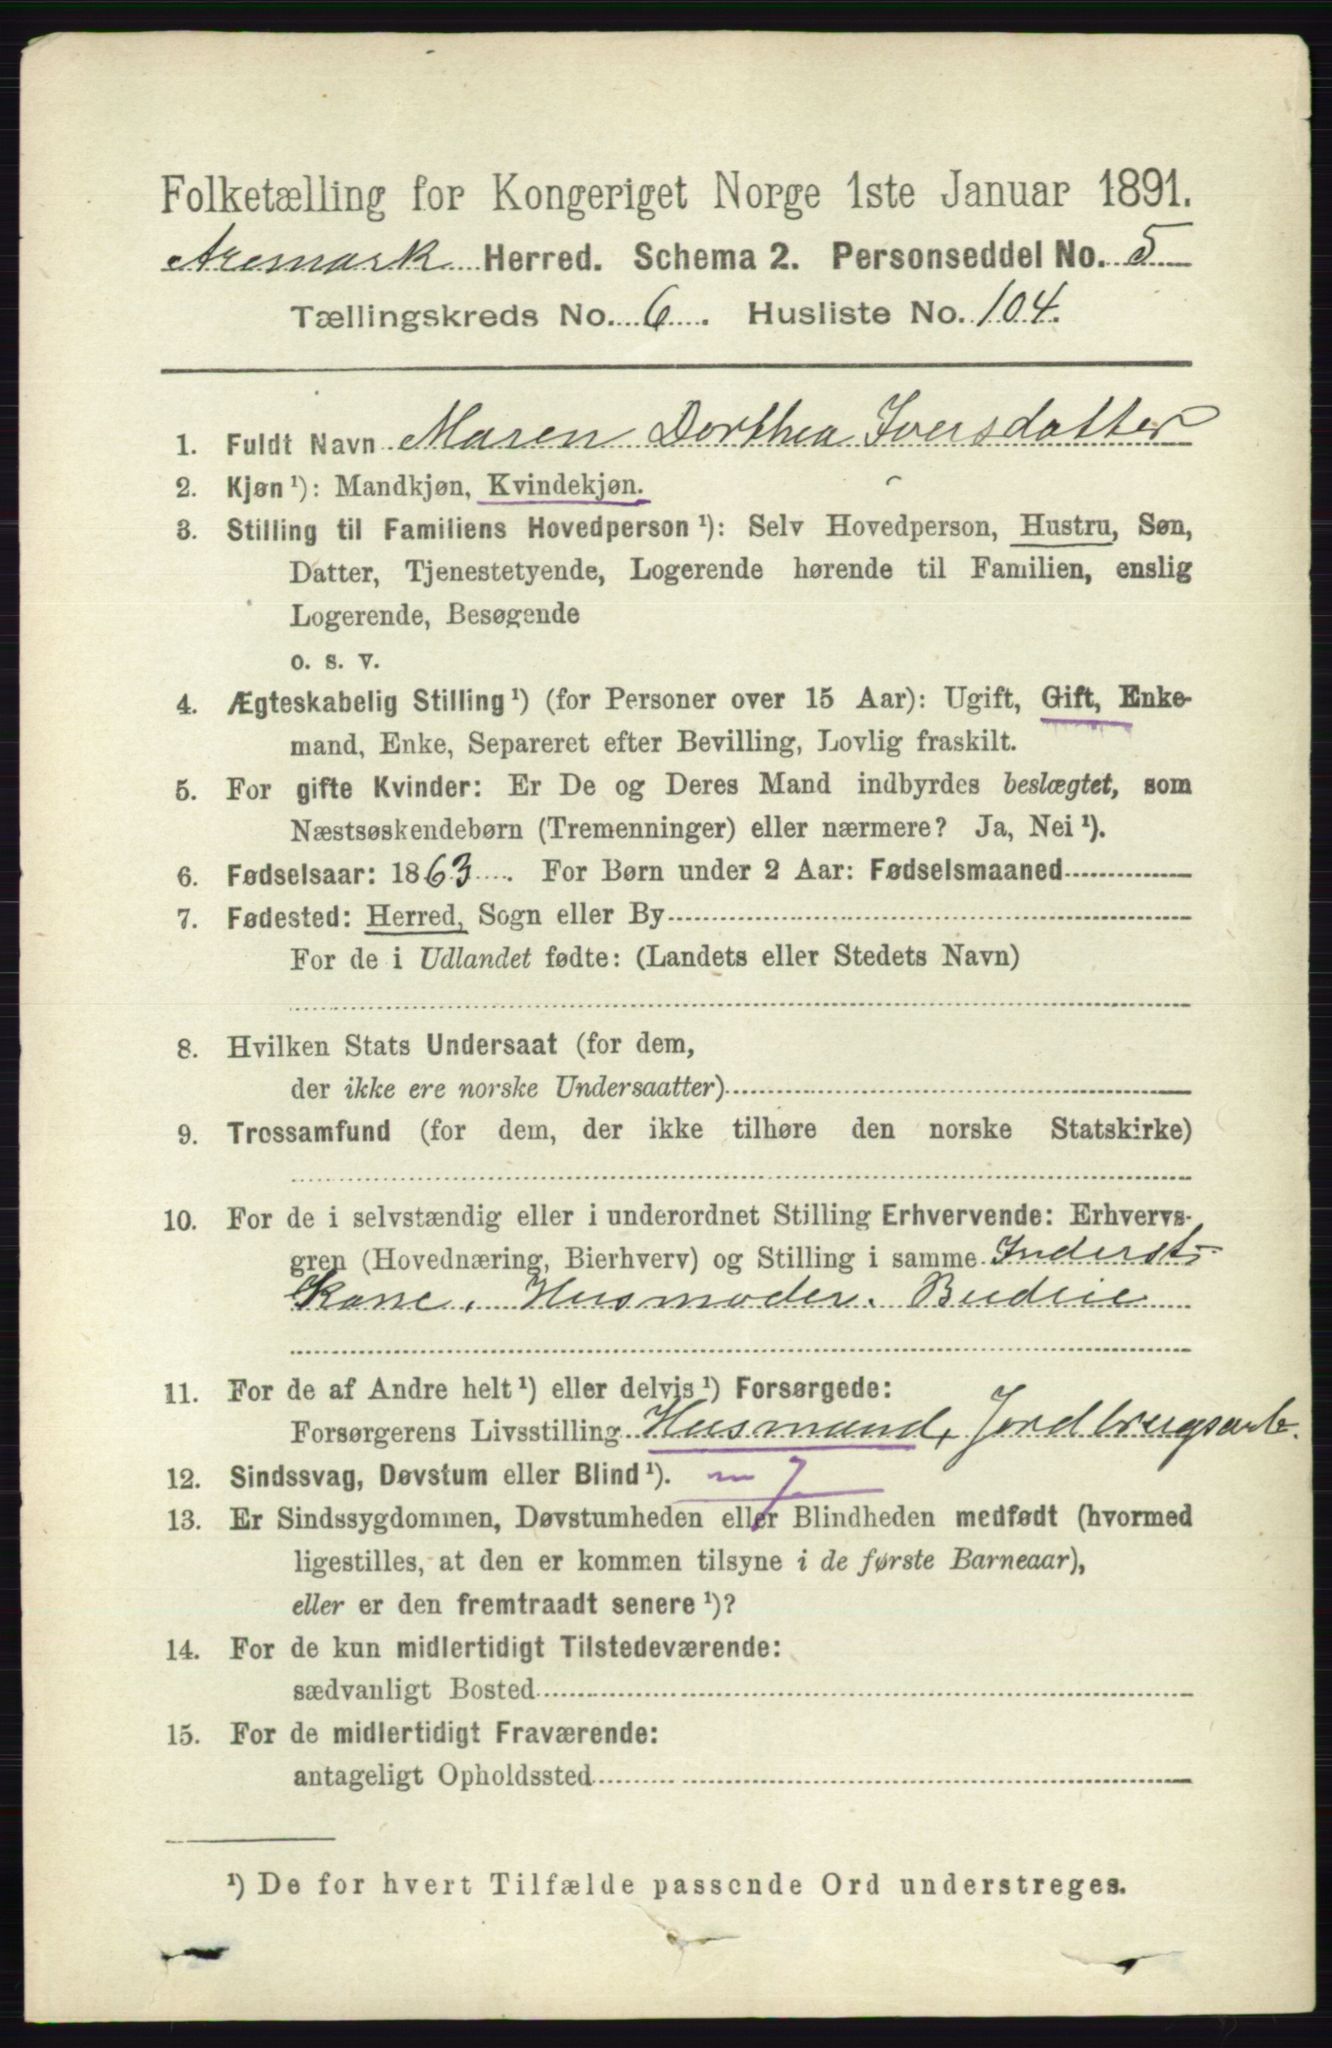 Folketælling for Kongeriget Norge 1ste Januar 1891.
Aremark Herred. Schema 2. Personseddel No. 5
Tællingskreds No. 6. Husliste No. 104.
1. Fuldt Navn Maren Dorthea Iversdatter
2. Kjøn ¹): Mandkjøn, Kvindekjøn.
3. Stilling til Familiens Hovedperson ¹): Selv Hovedperson, Hustru, Søn,
Datter, Tjenestetyende, Logerende hørende til Familien, enslig
Logerende, Besøgende
o. s. v.
4. Ægteskabelig Stilling ¹) (for Personer over 15 Aar): Ugift, Gift, Enke-
mand, Enke, Separeret efter Bevilling, Lovlig fraskilt.
5. For gifte Kvinder: Er De og Deres Mand indbyrdes beslægtet, som
Næstsøskendebørn (Tremenninger) eller nærmere? Ja, Nei ¹).
6. Fødselsaar: 1863. For Børn under 2 Aar: Fødselsmaaned
7. Fødested: Herred, Sogn eller By
For de i Udlandet fødte: (Landets eller Stedets Navn)
8. Hvilken Stats Undersaat (for dem,
der ikke ere norske Undersaatter)
9. Trossamfund (for dem, der ikke tilhøre den norske Statskirke)
10. For de i selvstændig eller i underordnet Stilling Erhvervende: Erhvervs-
gren (Hovednæring, Bierhverv) og Stilling i samme Inderst-
Kone, Husmoder. Budeie
11. For de af Andre helt ¹) eller delvis ¹) Forsørgede:
Forsørgerens Livsstilling Husmand, Jordbrugsarb.
12. Sindssvag, Døvstum eller Blind ¹).
13. Er Sindssygdommen, Døvstumheden eller Blindheden medfødt (hvormed
ligestilles, at den er kommen tilsyne i de første Barneaar),
eller er den fremtraadt senere ¹)?
14. For de kun midlertidigt Tilstedeværende:
sædvanligt Bosted
15. For de midlertidigt Fraværende:
antageligt Opholdssted
¹) De for hvert Tilfælde passende Ord understreges.